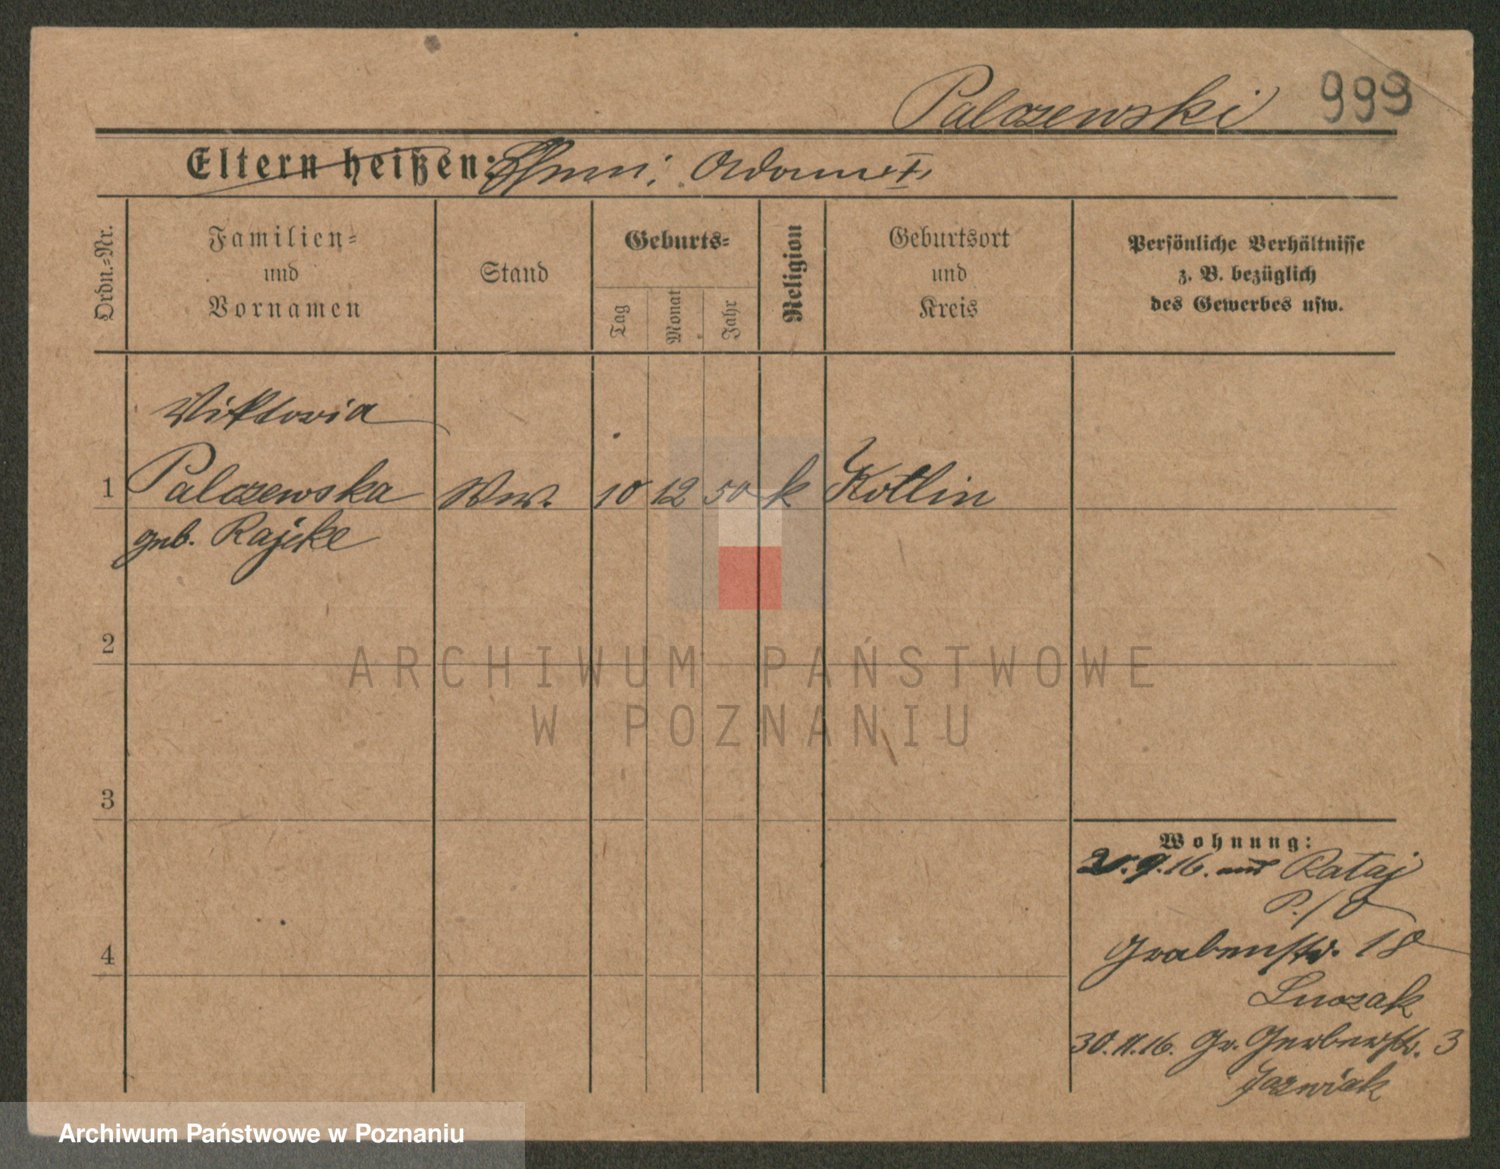 Palczewski 999
Eltern heißen: Ehem: Adam †
Ordn.-Nr.
Familien-
und
Vornamen
Stand
Geburts-
Tag
Monat
Jahr
Religion
Geburtsort
und
Kreis
Persönliche Verhältnisse
z. B. bezüglich
des Gewerbes usw.
Viktoria
1 Palczewska Ww. 10 12 50 k Kotlin
geb. Rajske
2
ARCHIWUM PAŃSTWOWE
W POZNANIU
3
Wohnung:
9.16. Rataj
Grabenstr. 18
Luczak
30.11.16. Gr. Gerberstr. 3
Jozwiak
4
Archiwum Państwowe w Poznaniu